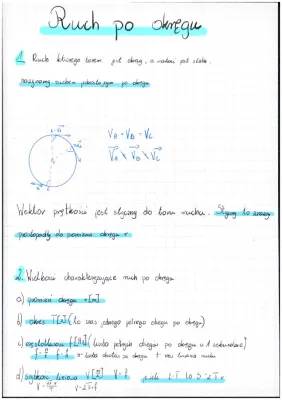 Ruch po okręgu
1. Ruch którego torem jest okrąg, a wartość jest stała
nazywamy ruchem jednostajnym po okręgu
VA = VB = VC
VA \ VB \ VC
Wektor prędkości jest styczny do toru ruchu. Styczny to znaczy
prostopadły do promienia okręgu r
2. Wielkości charakteryzujące ruch po okręgu
a) promień okręgu r[m]
b) okres T[s] (to czas jednego pełnego obiegu po okręgu)
c) częstotliwość f[Hz] (liczba pełnych obiegów po okręgu w 1 sekundzie)
d) prędkość liniowa V